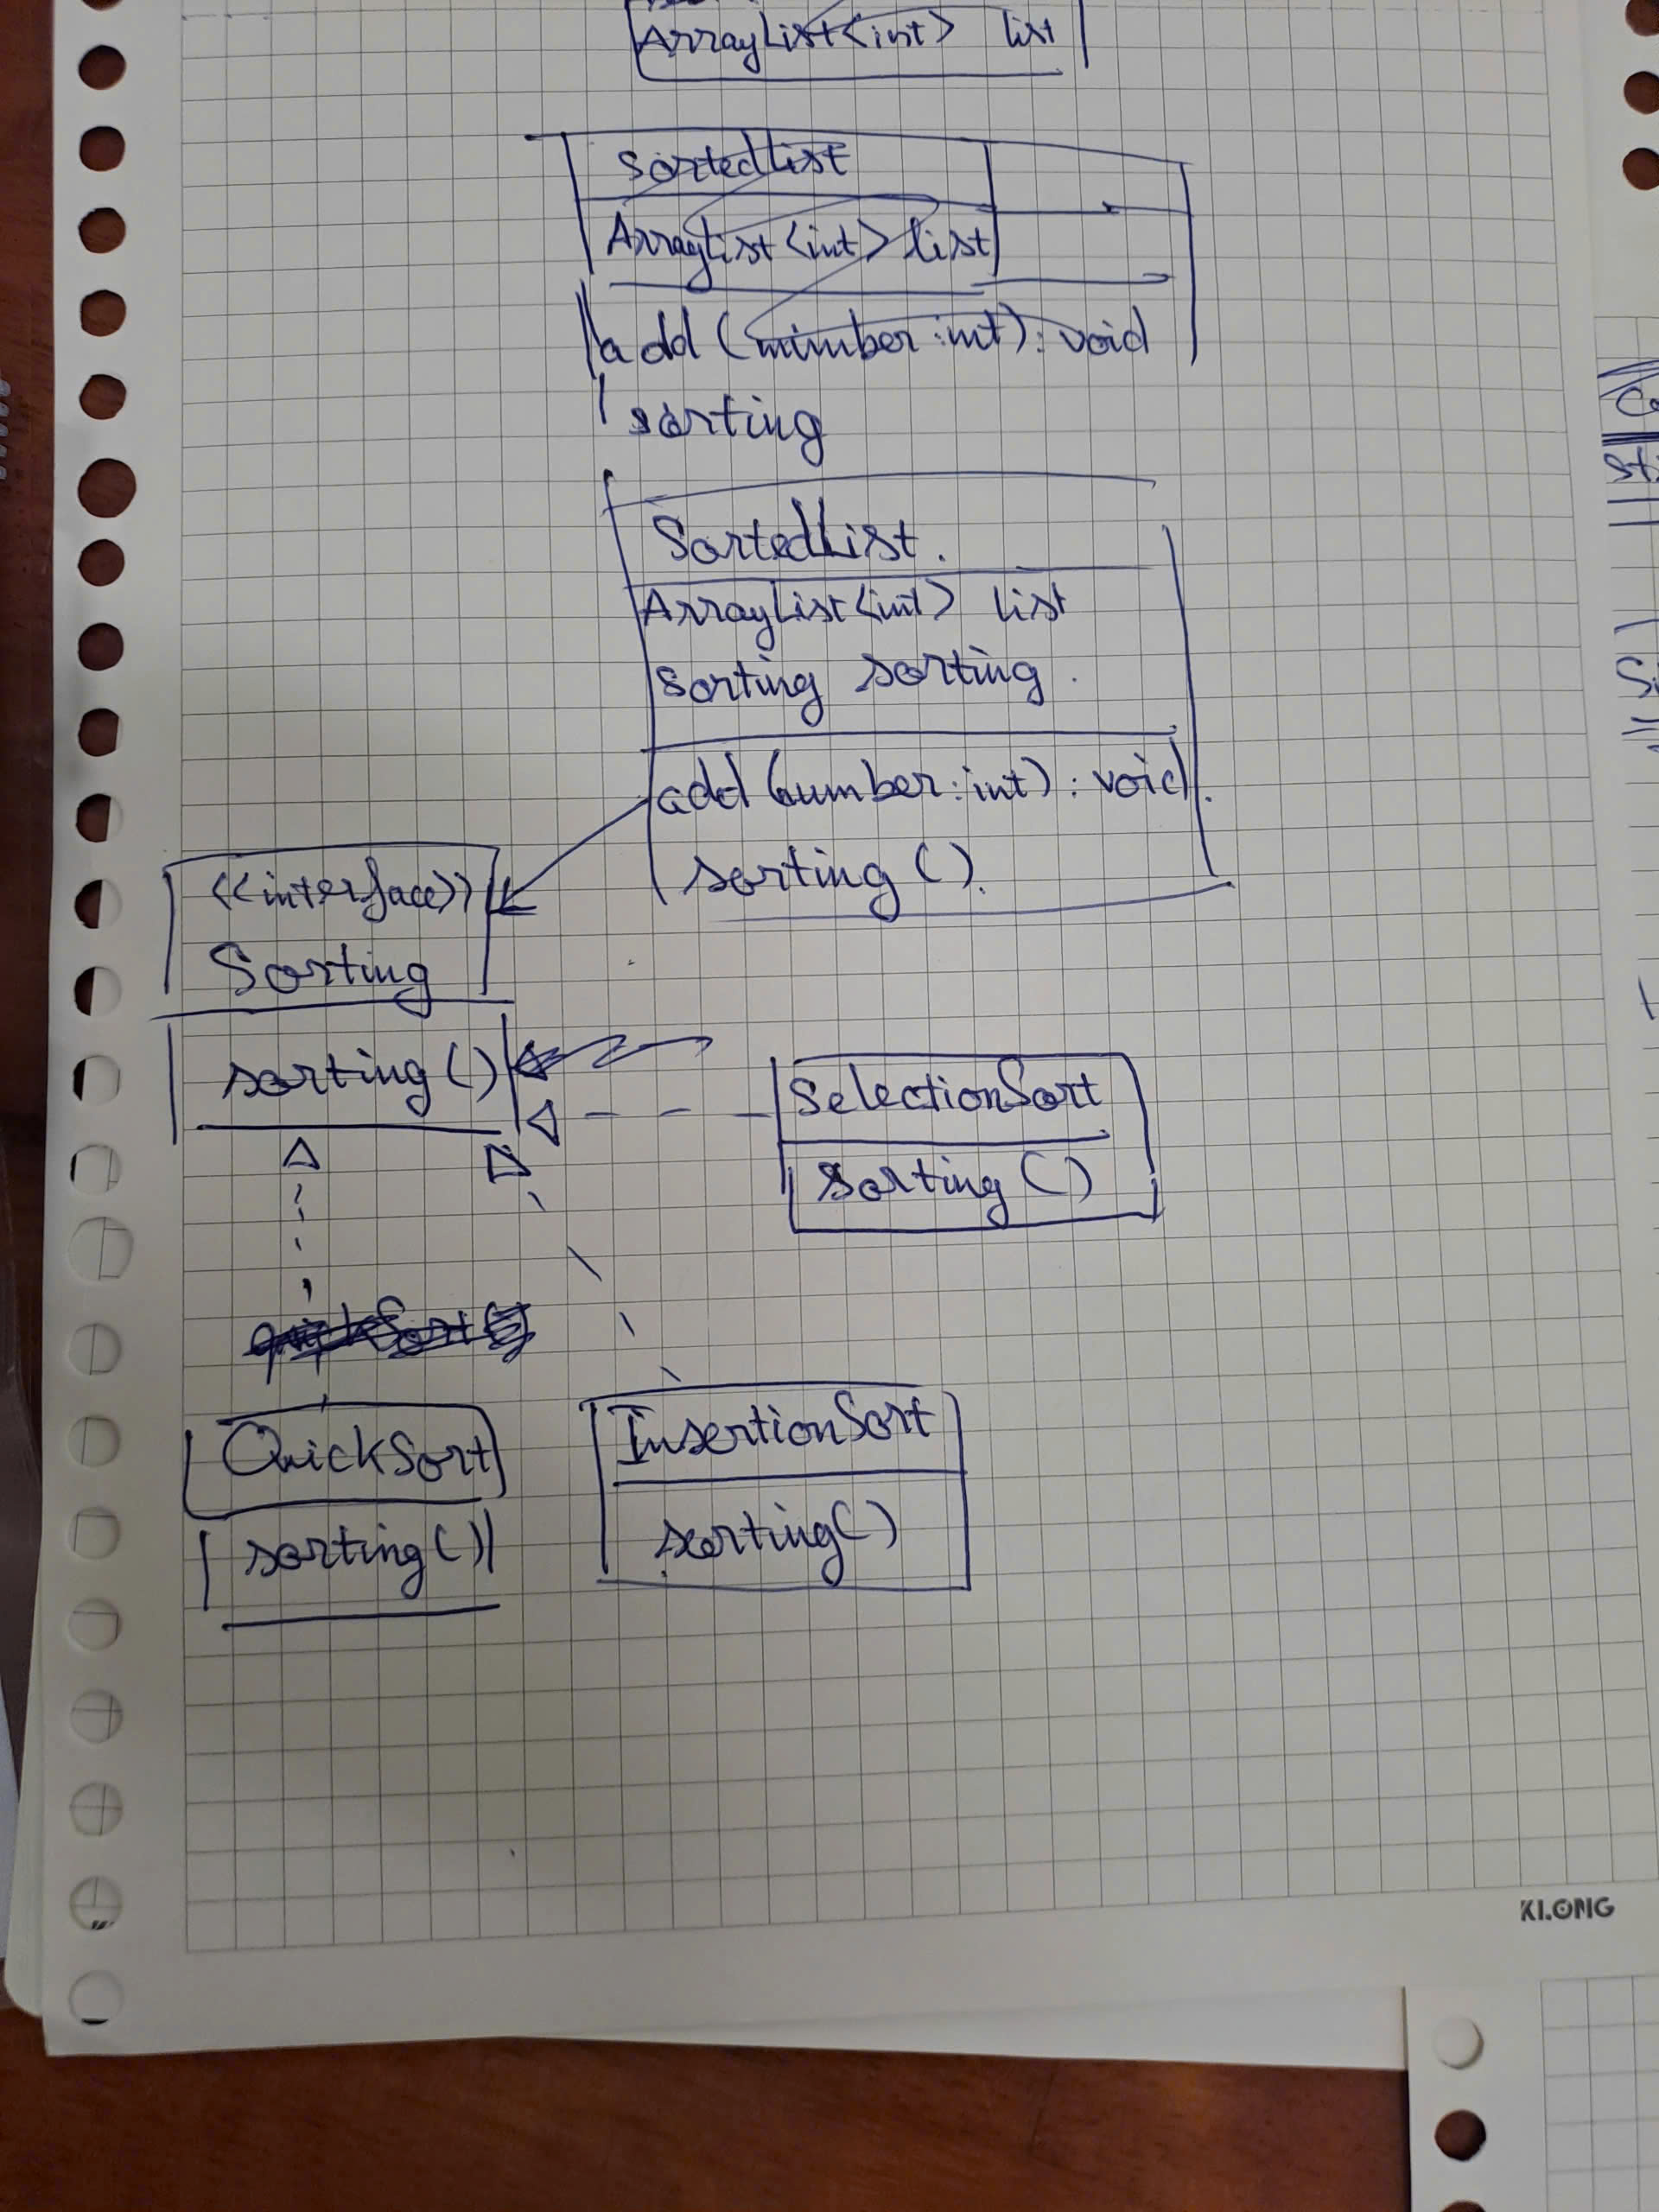 ArrayList<int> list
SortedList
ArrayList<int> list
add (number:int): void
sorting
SortedList.
ArrayList<int> list
Sorting sorting.
add (number:int): void.
sorting ().
<<interface>>
Sorting
sorting ()
SelectionSort
sorting ()
QuickSort
sorting ()
InsertionSort
sorting()
KLONG